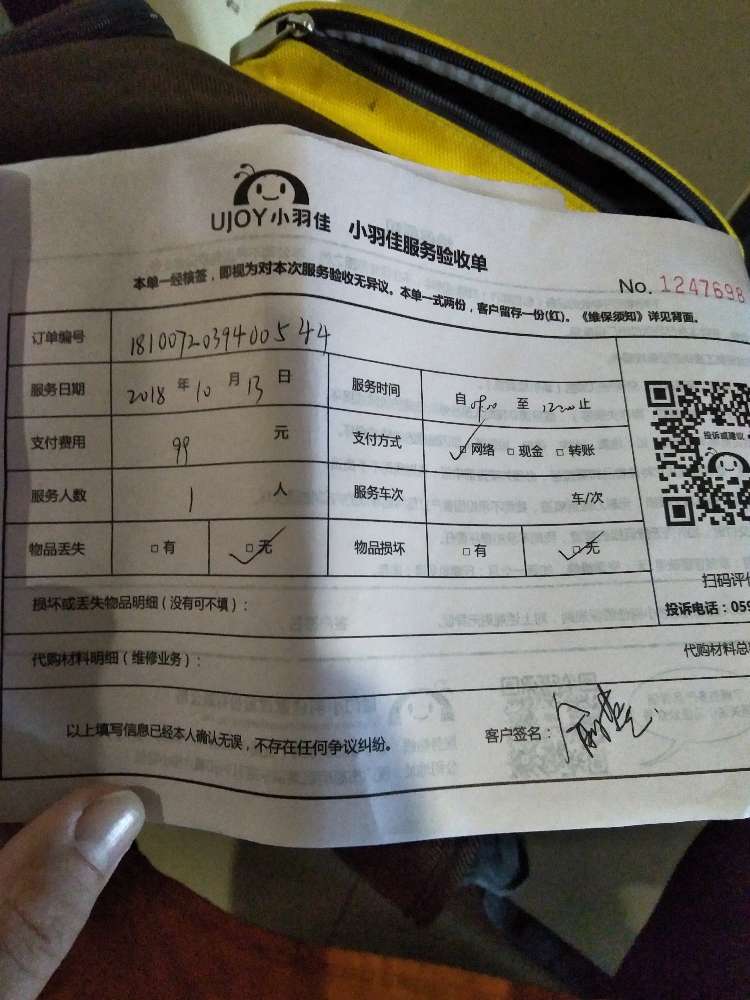 UJOY小羽佳 小羽佳服务验收单
No. 1247698
本单一经核签，即视为对本次服务验收无异议。本单一式两份，客户留存一份(红)。《维保须知》详见背面。
订单编号 1810072039400544
服务日期 2018 年 10 月 13 日 服务时间 自 09:00 至 12:00 止
支付费用 99 元 支付方式 ☑ 网络 □ 现金 □ 转账
投诉或建议
服务人数 1 人 服务车次 车/次
物品丢失 □ 有 ☑ 无 物品损坏 □ 有 ☑ 无
扫码评价
损坏或丢失物品明细（没有可不填）：
投诉电话：059
代购材料明细（维修业务）：
代购材料总
以上填写信息已经本人确认无误，不存在任何争议纠纷。 客户签名：